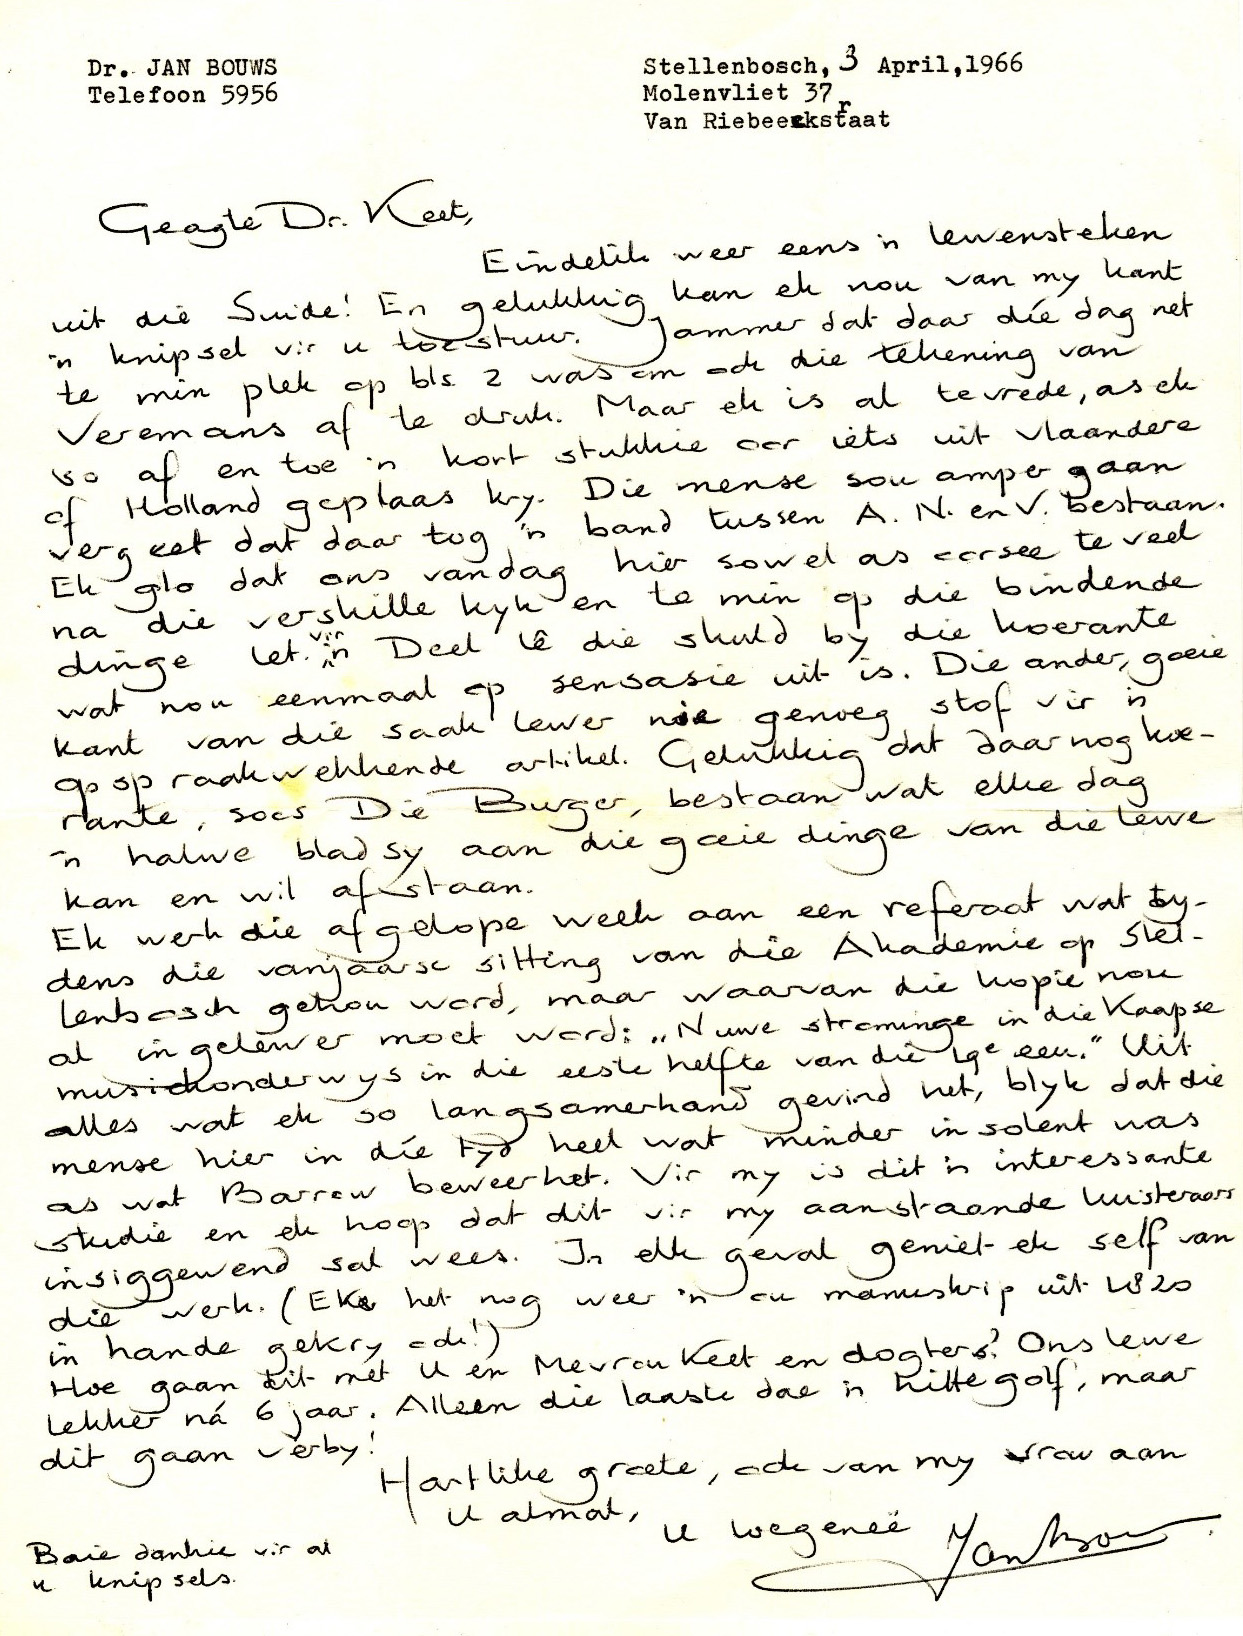 Dr. JAN BOUWS
Telefoon 5956
Stellenbosch, 3 April,1966
Molenvliet 37
Van Riebeeckstraat
Geagte Dr. Keet,
Eindelik weer eens 'n lewensteken
uit die Suide! En gelukkig kan ek nou van my kant
'n knipsel vir u stuur. Jammer dat daar díe dag net
te min plek op bls 2 was om ook die tekening van
Veremans af te druk. Maar ek is al tevrede, as ek
so af en toe 'n kort stukkie oor iets uit Vlaandere
of Holland geplaas kry. Die mense sou amper gaan
vergeet dat daar tog 'n band tussen A. N. en V. bestaan.
Ek glo dat ons vandag hier sowel as oorsee te veel
na die verskille kyk en te min op die bindende
dinge let. Vir 'n Deel lê die skuld by die koerante
wat nou eenmaal op sensasie uit is. Die ander, goeie
kant van die saak lewer nie genoeg stof vir 'n
opspraakwekkende artikel. Gelukkig dat daar nog koe-
rante, soos Die Burger, bestaan wat elke dag
'n halwe bladsy aan die goeie dinge van die lewe
kan en wil afstaan.
Ek werk die afgelope week aan een referaat wat ty-
dens die vanjaarse sitting van die Akademie op Stel-
lenbosch gehou word, maar waarvan die kopie nou
al ingelewer moet word: „Nuwe strominge in die Kaapse
musiekonderwys in die eeste helfte van die 19e eeu." Uit
alles wat ek so langsamerhand gevind het, blyk dat die
mense hier in díe tyd heel wat minder insolent was
as wat Barrow beweer het. Vir my is dit 'n interessante
studie en ek hoop dat dit vir my aanstaande luisteraars
insiggewend sal wees. In elk geval geniet ek self van
die werk. (Ek het nog weer 'n ou manuskrip uit 1820
in hande gekry ook!)
Hoe gaan dit met U en Mevrou Keet en dogters? Ons lewe
lekker ná 6 jaar. Alleen die laaste dae 'n hittegolf, maar
dit gaan verby!
Hartlike groete, ook van my vrou aan
U almal,
U toegeneë Jan Bouws
Baie dankie vir al
u knipsels.